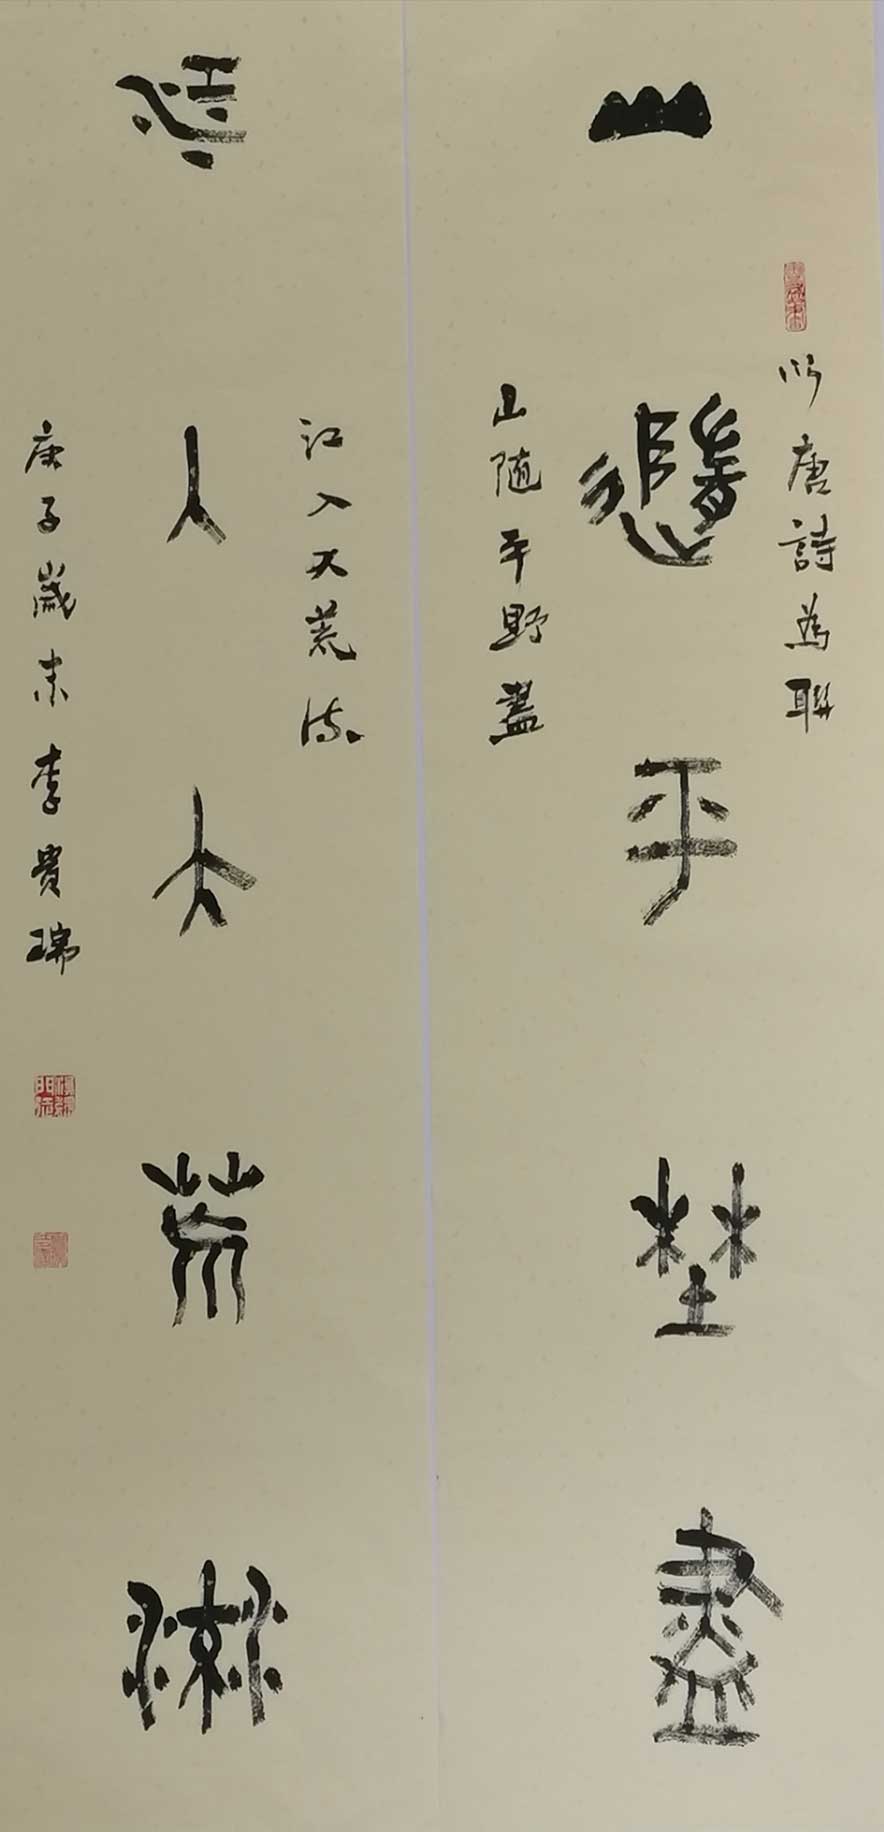 以唐詩為聯
山隨平埜盡
山随平野盡
江入大荒流
江入大荒流
庚子歲末李貴瑞